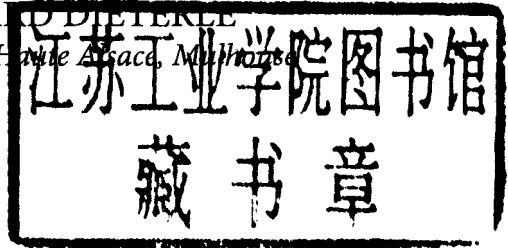 ARD DIETERLE
Haute Alsace, Mulhouse
江苏工业学院图书馆
藏书章